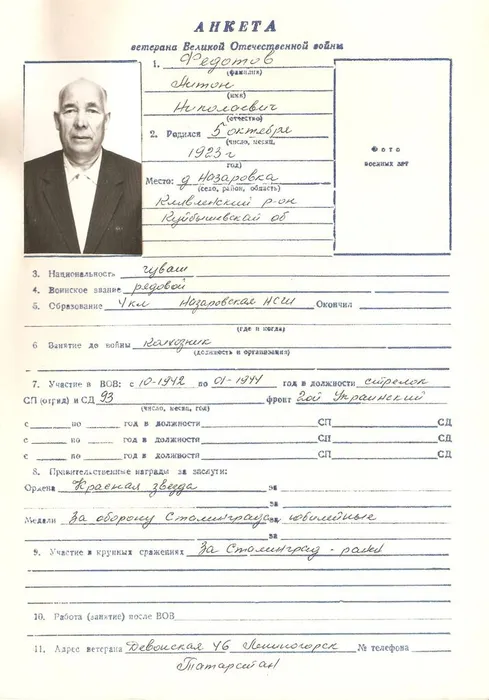 АНКЕТА
ветерана Великой Отечественной войны
1. Федотов
(фамилия)
Антон
(имя)
Николаевич
(отчество)
2. Родился 5 октября
(число, месяц,
1923 г
год)
Место: д Назаровка
(село, район, область)
Клявлинский р-он
Куйбышевская об
Фото
военных лет
3. Национальность чуваш
4. Воинское звание рядовой
5. Образование 4 кл Назаровская НСШ Окончил
(где и когда)
6 Занятие до войны Колхозник
(должность и организация)
7. Участие в ВОВ: с 10-1942 по 01-1944 год в должности стрелок
СП (отряд) и СД 93 фронт 2ой Украинский
(число, месяц, год)
с по год в должности СП СД
с по год в должности СП СД
с по год в должности СП СД
8. Правительственные награды за заслуги:
Ордена Красная звезда за
за
Медали За оборону Сталинграда за юбилейные
за
9. Участие в крупных сражениях За Сталинград -
10. Работа (занятие) после ВОВ
11. Адрес ветерана 46 Лениногорск № телефона
Татарстан